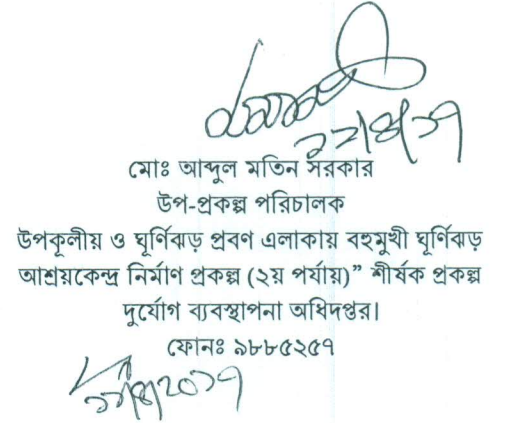 মোঃ আব্দুল মতিন সরকার
উপ-প্রকল্প পরিচালক
উপকূলীয় ও ঘূর্ণিঝড় প্রবণ এলাকায় বহুমুখী ঘূর্ণিঝড়
আশ্রয়কেন্দ্র নির্মাণ প্রকল্প (২য় পর্যায়)” শীর্ষক প্রকল্প
দুর্যোগ ব্যবস্থাপনা অধিদপ্তর।
ফোনঃ ৯৮৮৫২৫৭